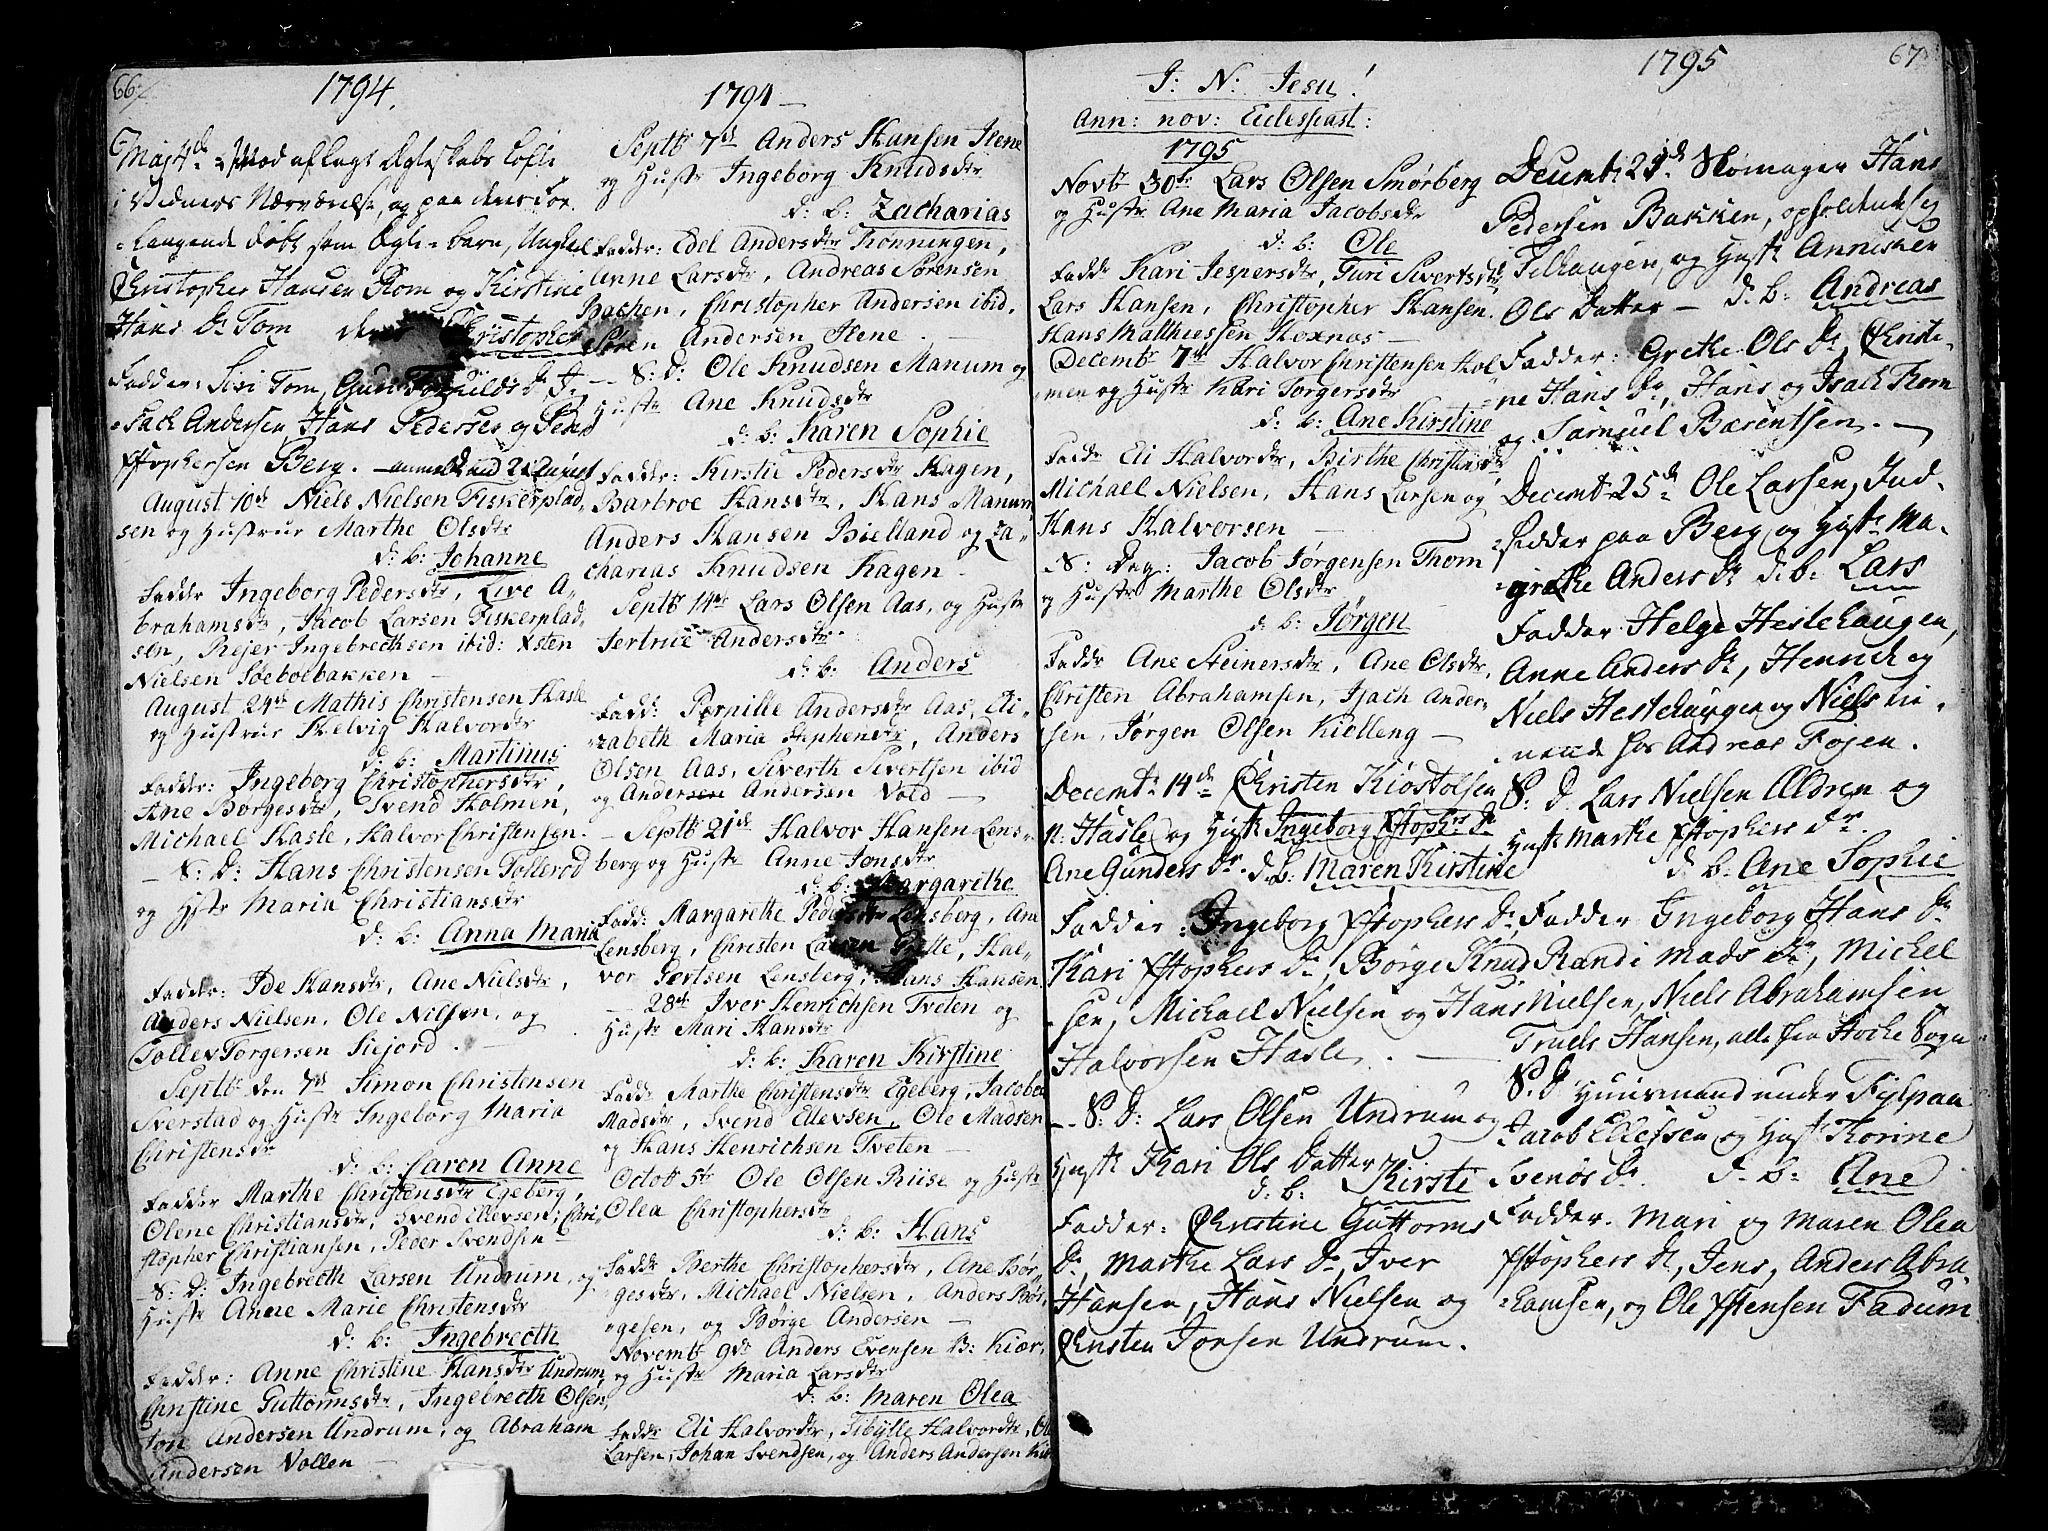 66
1794.
Maj 4de imod aflagt Ægteskabs Løfte
i Vidners Nærværelse, og paa den For
=langende døbt som Ægte=barn, Ungkarl
Christopher Hansen Rom og Kirstine
Hans Dr Tom deres Christopher
Fadder: Sisi Tom, Guri Torkilds Dr I-
=sach Andersen, Hans Pedersen og Peder
Xstophersen Berg.
August 10de Niels Nielsen Fiskerplad-
sen og Hustrue Marthe Olsdtr
d: b: Johanne
Fadder Ingeborg Pedersdtr, Live A-
brahamsdtr, Jacob Larsen Fiskerplad
sen, Rejer Ingebrechtsen ibid: Xsten
Nielsen Søebolbakken —
August 24de Mathis Christensen Hasle
og Hustrue Helvig Halvordtr
d: b: Martinus
Fadder: Ingeborg Christophersdtr,
Ane Børgesdtr, Svend Holmen,
Michael Hasle, Halvor Christensen.
— S: D: Hans Christensen Tollerød
og Hstr Maria Christiansdtr
d: b: Anna Maria
Fadder: Ide Hansdtr, Ane Nielsdtr,
Anders Nielsen, Ole Nilsen, og
Tollev Torgersen Siejord. —
Septb den 7de Simon Christensen
Sverstad og Hustr Ingeborg Maria
Christensdtr
d: b: Caren Anne
Fadder Marthe Christensdtr Egeberg,
Olene Christiansdtr, Svend Ellevsen, Chri-
stopher Christiansen, Peder Svendsen
— S: D: Ingebrecth Larsen Undrum, og
Hustr Anne Marie Christensdtr
d: b: Ingebrecth
Fadder: Anne Christine Hansdtr Undrum,
Christine Guttormsdtr, Ingebrecth Olsen,
Jon Andersen Undrum, og Abraham
Andersen Vollen —
1794 —
Septb 7de Anders Hansen Ilene
og Hustr Ingeborg Knudsdtr
d: b: Zacharias
Fadder: Edel Andersdtr Rønningen,
Anne Larsdtr, Andreas Sørensen
Bachen, Christopher Andersen ibid,
Søren Andersen Ilene. —
— S: D: Ole Knudsen Manum og
Hustr Ane Knudsdtr
d: b: Karen Sophie
Fadder: Kirstie Pedersdtr Hagen,
Barbroe Hansdtr, Hans Manum
Anders Hansen Bielland og Za-
charias Knudsen Hagen —
Septb 14de Lars Olsen Aas, og Hustr
Jertrue Andersdtr
d: b: Anders
Fadd: Pernille Andersdtr Aas, Eli-
zabeth Maria Stephensdtr, Anders
Olsen Aas, Siverth Sivertsen ibid
og Andersen Andersen Vold —
— Septb 21de Halvor Hansen Lens-
berg og Hustr Anne Jonsdtr
d: b: Margarethe
Fadd: Margarethe Pedersdtr Lensberg, Ane
Lensberg, Christen Larsen Grette, Hal-
vor Jertsen Lensberg, Hans Hansen
— 28de Iver Henrichsen Tveten og
Hustr Mari Hansdtr
d: b: Karen Kirstine
Fadd: Marthe Christensdtr Egeberg, Jacobea
Madsdtr, Svend Ellevsen, Ole Madsen
og Hans Henrichsen Tveten —
Octob 5te Ole Olsen Riise og Hustr
Olea Christophersdtr
d: b: Hans
Fadd: Berthe Christophersdtr, Ane Bør-
gesdtr, Michael Nielsen, Anders Bør-
gesen, og Børge Andersen —
Novemb 9de Anders Evensen B: Kiær,
og Hustr Maria Larsdtr
d: b: Maren Olea
Fadd: Eli Halvordtr, Sibylle Halvordtr, Ole
Larsen, Johan Svendsen, og Anders Andersen
J: N: Jesu!
Ann: nov: Eclesiast:
1795
Novbr 30te Lars Olsen Smørberg
og Hustr Ane Maria Jacobsdtr
d: b: Ole
Fadd: Kari Jespersdtr, Turi Sivertsdtr,
Lars Hansen, Christopher Hansen.
Hans Matthiessen Hoxnas —
Decembr 7de Halvor Christensen Hol
men og Hustr Kari Torgersdtr
d: b: Ane Kirstine
Fadd: Eli Halvordtr, Birthe Christensdtr
Michael Nielsen, Hans Larsen og
Hans Halvorsen —
S: Dag: Jacob Jørgensen Thom
og Hustr Marthe Olsdtr
d: b: Jørgen
Fadd: Ane Steinersdtr, Ane Olsdtr,
Christen Abrahamsen, Isach Ander-
sen, Jørgen Olsen Kielleng —
Decembr 14de Christen Kiøstolsen
n: Hasle og Hustr Ingeborg Xstophers Dr
Ane Gunders Dr. d: b: Maren Kirstine
Fadder: Ingeborg Xstophers Dr,
Kari Xstophers Dr, Børge Knud
sen, Michael Nielsen og Hans
Halvorsen Hasle. —
— S: D: Lars Olsen Undrum og
Hustr Kari Ols Datter
d: b: Kirsti
Fadder: Christine Guttorms
Dr, Marthe Lars Dr, Iver
Hansen, Hans Nielsen og
Christen Jonsen Undrum.
1795
67
Decembr 21de Skomager Hans
Pedersen Bakken, opholdende sig
i Filhaugen, og Hustr Annichen
Ols Datter — d: b: Andreas
Fadder: Grethe Ols Dr, Christi-
ne Hans Dr, Hans og Isach Thom
og Samuel Bærentsen. —
Decembr 25de Ole Larsen, Ind-
=sidder paa Berg og Hustr Ma-
=grethe Anders Dr d: b: Lars
Fadder Helge Hestehaugen,
Anne Anders Dr, Henrich og
Niels Hestehaugen og Niels tie-
nende hos Andreas Fojen.
S: D: Lars Nielsen Oldren og
Hustr Marthe Xstophers Dr.
d: b: Ane Sophie
Fadder Ingeborg Hans Dr
Randi Mads Dr, Michel
Nielsen, Niels Abrahamsen
Truels Hansen, alle fra Stokke Sogn
S: D Huusmand under Fylpaa
Jacob Ellefssen og Hustr Thorine
Svenøs Dr. d: b: Ane
Fadder. Mari og Maren Olea
Xstophers Dr, Jens, Anders Abra-
=hamsen, og Ole Xstensen Fadum